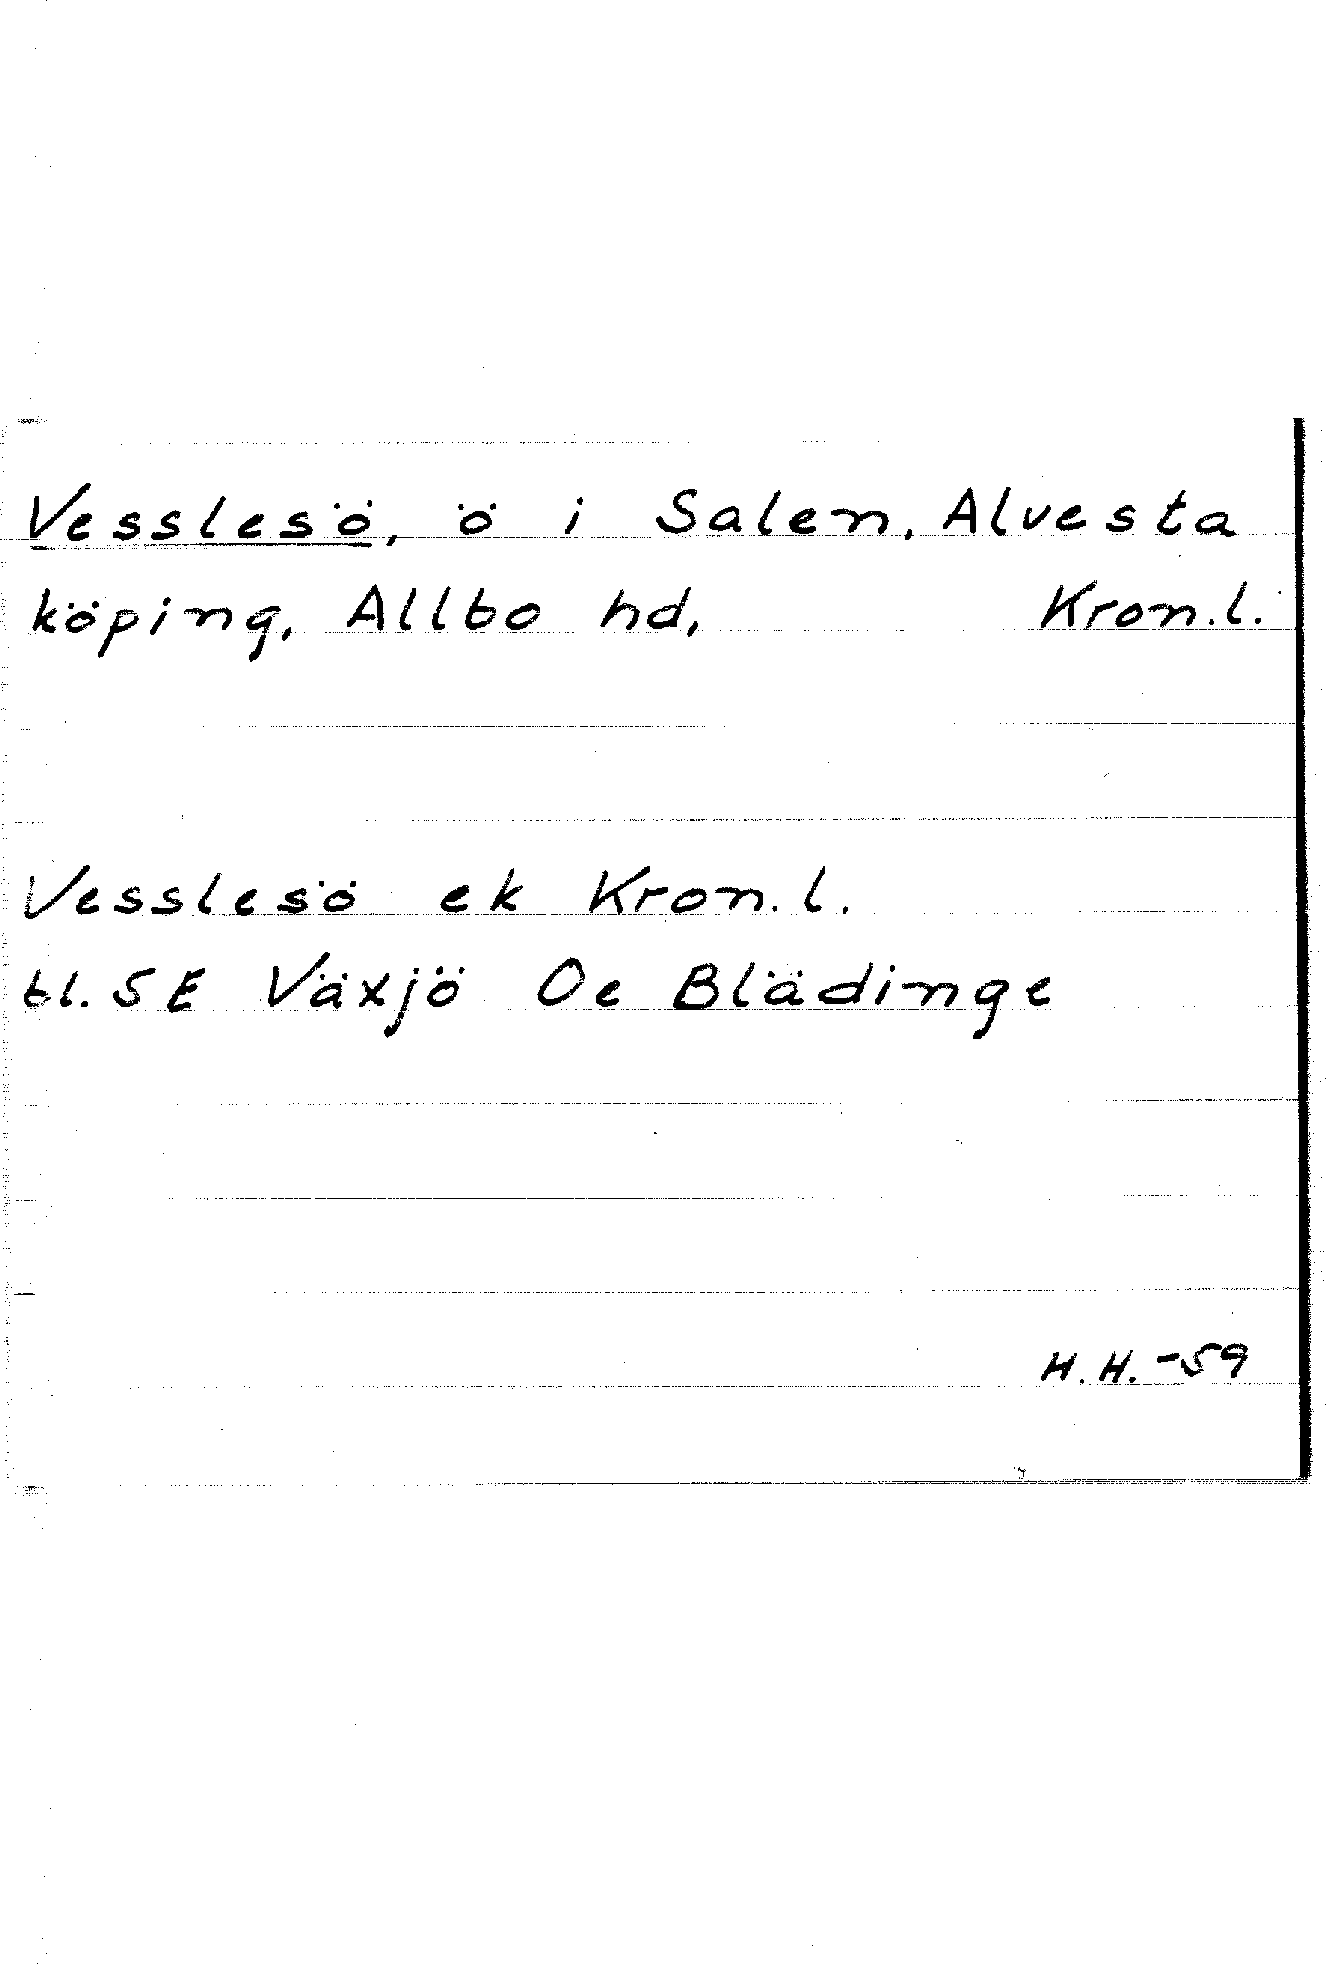 Vesslesö, ö i Salen, Alvesta
köping, Allbo hd, Kron.l.
Vesslesö ek Kron.l.
bl. SE Växjö Oe Blädinge
H.H. -59